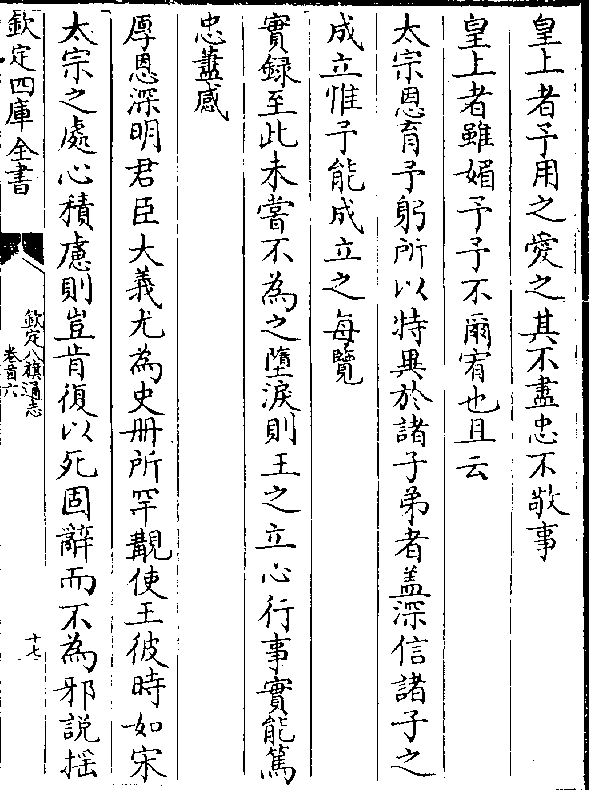 皇上者予用之愛之其不盡忠不敬事
皇上者雖媚予予不爾宥也且云
太宗恩育予躬所以特異於諸子弟者蓋深信諸子之
成立惟予能成立之每覽
實録至此未嘗不為之墮淚則王之立心行事實能篤
忠藎感
厚恩深明君臣大義尤為史册所罕覯使王彼時如宋
太宗之處心積慮則豈肯復以死固辭而不為邪説揺
欽定四庫全書
欽定八旗通志
卷首六
十七